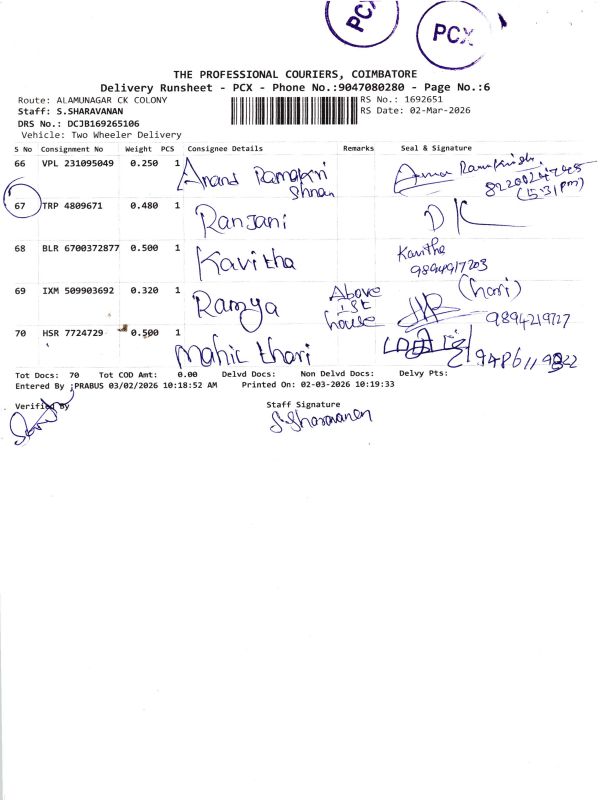 PCX
PCX
THE PROFESSIONAL COURIERS, COIMBATORE
Delivery Runsheet - PCX - Phone No.:9047080280 - Page No.:6
Route: ALAMUNAGAR CK COLONY RS No.: 1692651
Staff: S.SHARAVANAN RS Date: 02-Mar-2026
DRS No.: DCJB169265106
Vehicle: Two Wheeler Delivery
S No Consignment No Weight PCS Consignee Details Remarks Seal & Signature
66 VPL 231095049 0.250 1 Anand Ramakri
shnan
(5:31pm)
67 TRP 4809671 0.480 1 Ranjani DK
68 BLR 6700372877 0.500 1 Kavitha Kavitha
9894917203
69 IXM 509903692 0.320 1 Ramya Above
1st
house
(hari)
9894219727
70 HSR 7724729 0.500 1
Tot Docs: 70 Tot COD Amt: 0.00 Delvd Docs: Non Delvd Docs: Delvy Pts:
Entered By :PRABUS 03/02/2026 10:18:52 AM Printed On: 02-03-2026 10:19:33
Verified By Staff Signature
S.Sharavanan